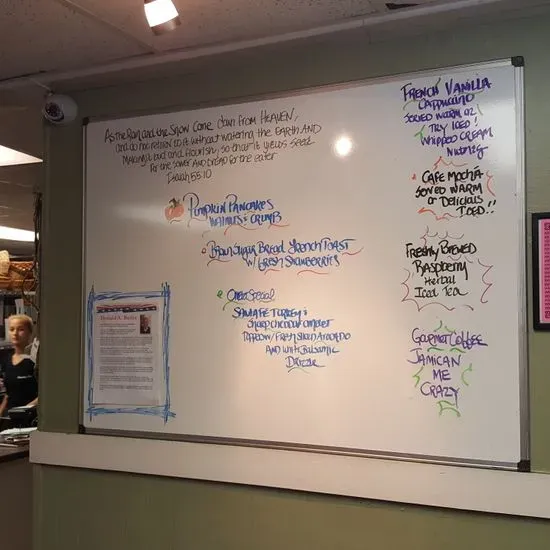 As the Rain and the Snow Come down from HEAVEN,
and do not return to it without watering the EARTH AND
Making it bud and flourish, so that it yields seed
for the sower AND bread for the eater
Isaiah 55:10
Pumpkin Pancakes
Walnuts & Crumb
Brown Sugar Bread French Toast
w/ Fresh Strawberries
Omelet Special
Santa Fe Turkey &
Sharp Cheddar omelet
Topped w/ Fresh Sliced Avocado
AND White Balsamic
Drizzle
Donald A. Butler
French Vanilla
Cappuccino
Served warm or
Try Iced!
Whipped CREAM
Nutmeg
Cafe Mocha
Served WARM
or Delicious
ICED!!
Freshly Brewed
Raspberry
Herbal
Iced Tea
Gourmet Coffee
JAMICAN
ME
CRAZY